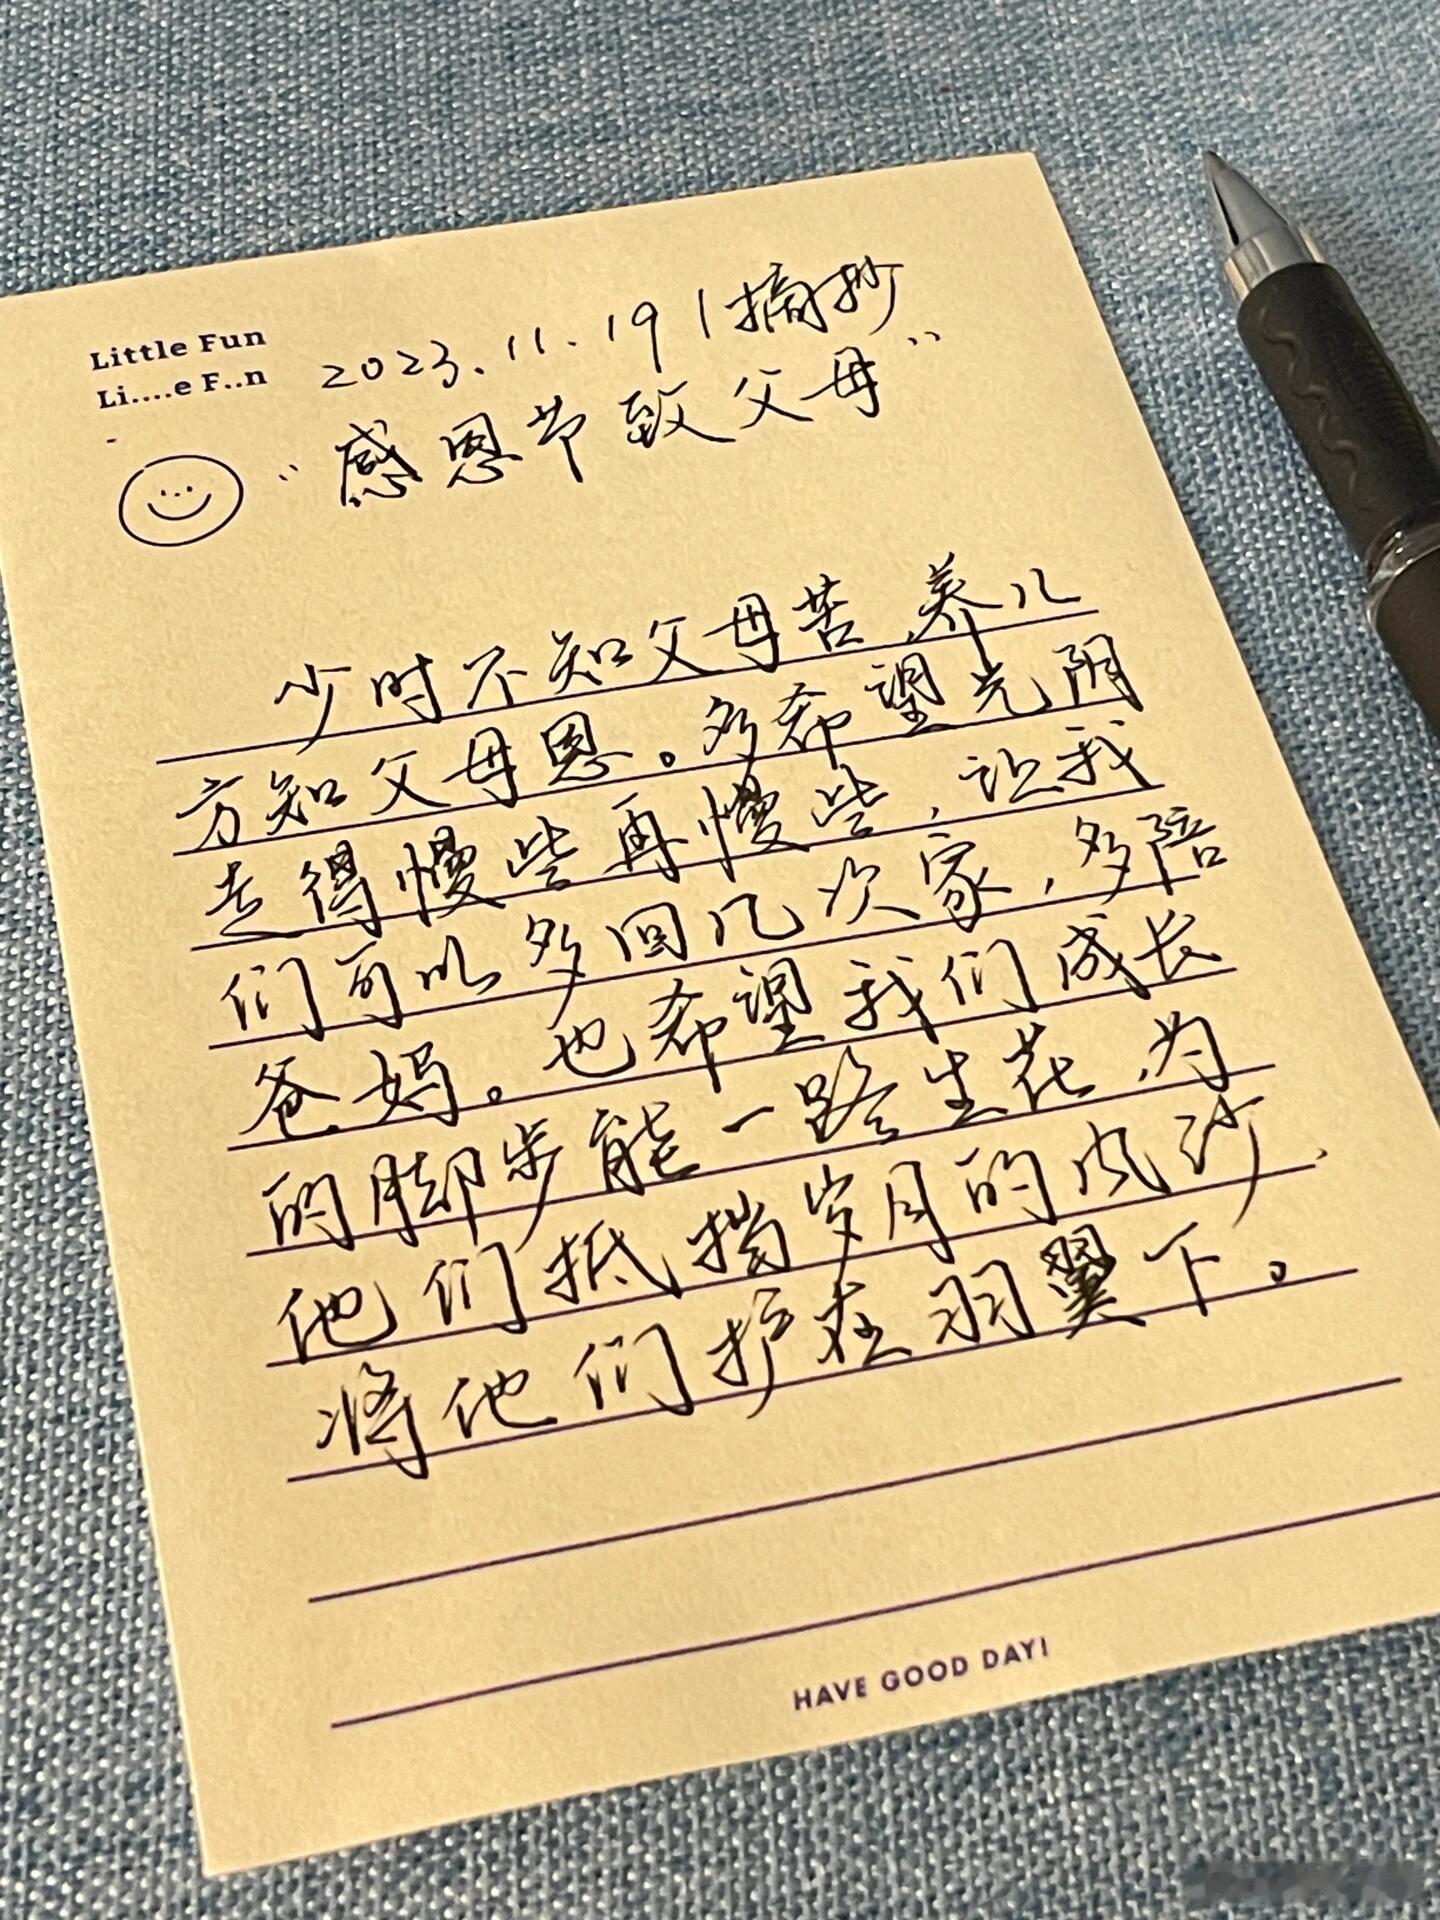 Little Fun
Li....e F..n
2023.11.19 | 摘抄
“感恩节致父母”
少时不知父母苦,养儿
方知父母恩。多希望光阴
走得慢些再慢些,让我
们可以多回几次家,多陪
爸妈。也希望我们成长
的脚步能一路生花,为
他们抵挡岁月的风沙.
将他们护在羽翼下。
HAVE GOOD DAY!